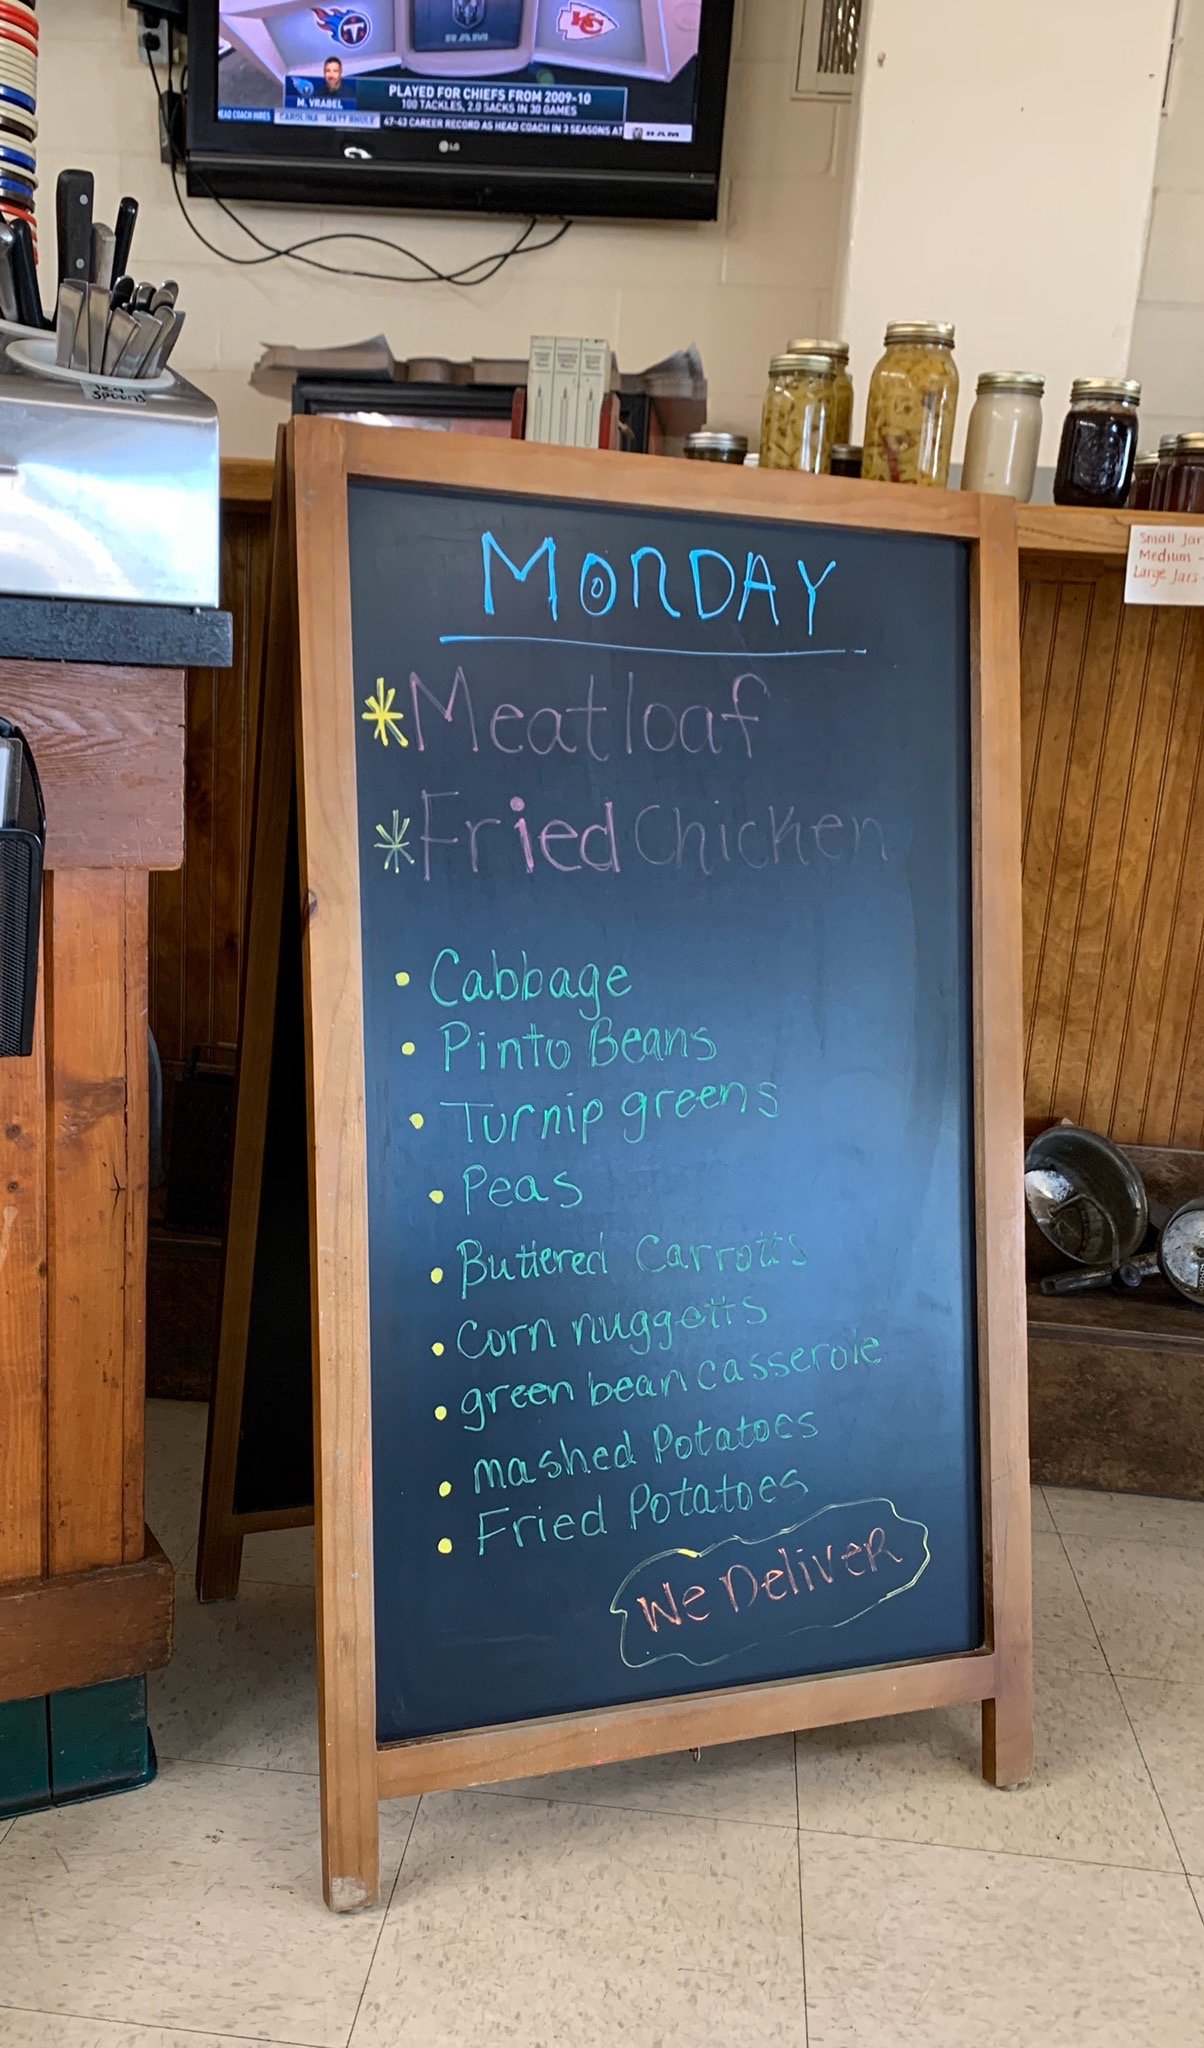 RAM
KC
M. VRABEL
PLAYED FOR CHIEFS FROM 2009-10
100 TACKLES, 2.0 SACKS IN 30 GAMES
HEAD COACH HIRES
CAROLINA: MATT RHULE
47-43 CAREER RECORD AS HEAD COACH IN 3 SEASONS AT
RAM
LG
Spoons
Small Jar
Medium -
Large Jars -
MONDAY
*Meatloaf
*Fried Chicken
• Cabbage
• Pinto Beans
• Turnip greens
• Peas
• Buttered Carrotts
• Corn nuggetts
• green bean casserole
• mashed Potatoes
• Fried Potatoes
We Deliver